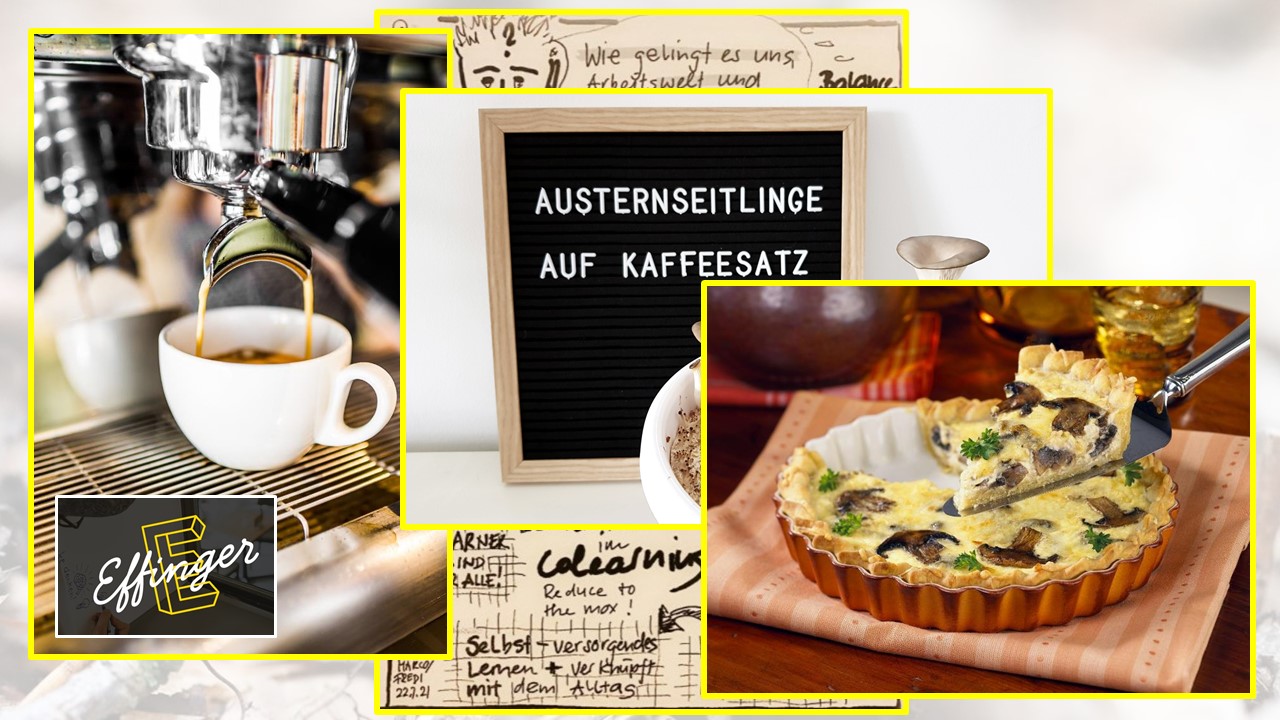 Wie gelingt es uns,
Arbeitswelt und
Balance
AUSTERNSEITLINGE
AUF KAFFEESATZ
Effinger
im
colearning
Reduce to
the max!
Selbst-versorgendes
Lernen + verknüpft
mit dem Alltag
MARCO/
FREDI
22.7.21